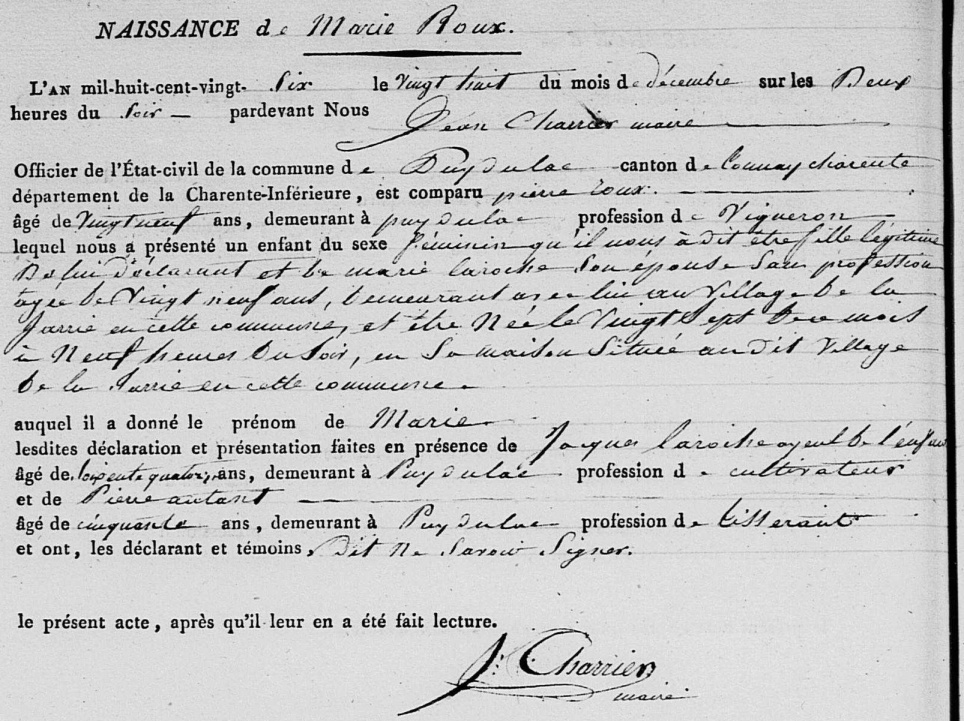 NAISSANCE de Marie Roux.
L'AN mil-huit-cent-vingt- Six le Vingt huit du mois de décembre sur les Deux
heures du Soir pardevant Nous
Jean Charrier maire
Officier de l'État-civil de la commune de Puydulac canton de Tonnay charente
département de la Charente-Inférieure, est comparu pierre roux.
âgé de Vingt neuf ans, demeurant à puydulac profession de Vigneron
lequel nous a présenté un enfant du sexe féminin qu'il nous à dit être fille légitime
De lui déclarant et de marie laroche Son épouse Sans profession
agée de Vingt neuf ans, demeurant avec lui au Village De la
Jarrie en cette commune, et être Née le Vingt Sept De ce mois
à Neuf heures Du Soir, en Sa maison Située au dit Village
De la Jarrie en cette commune.
auquel il a donné le prénom de Marie
lesdites déclaration et présentation faites en présence de Jacques laroche ayeul De l'enfant
âgé de Soixente quatre ans, demeurant à Puydulac profession de cultivateur
et de Pierre autant
âgé de cinquante ans, demeurant à Puydulac profession de tisserant
et ont, les déclarant et témoins, Dit Ne Savoir Signer.
le présent acte, après qu'il leur en a été fait lecture.
J. Charrier
maire